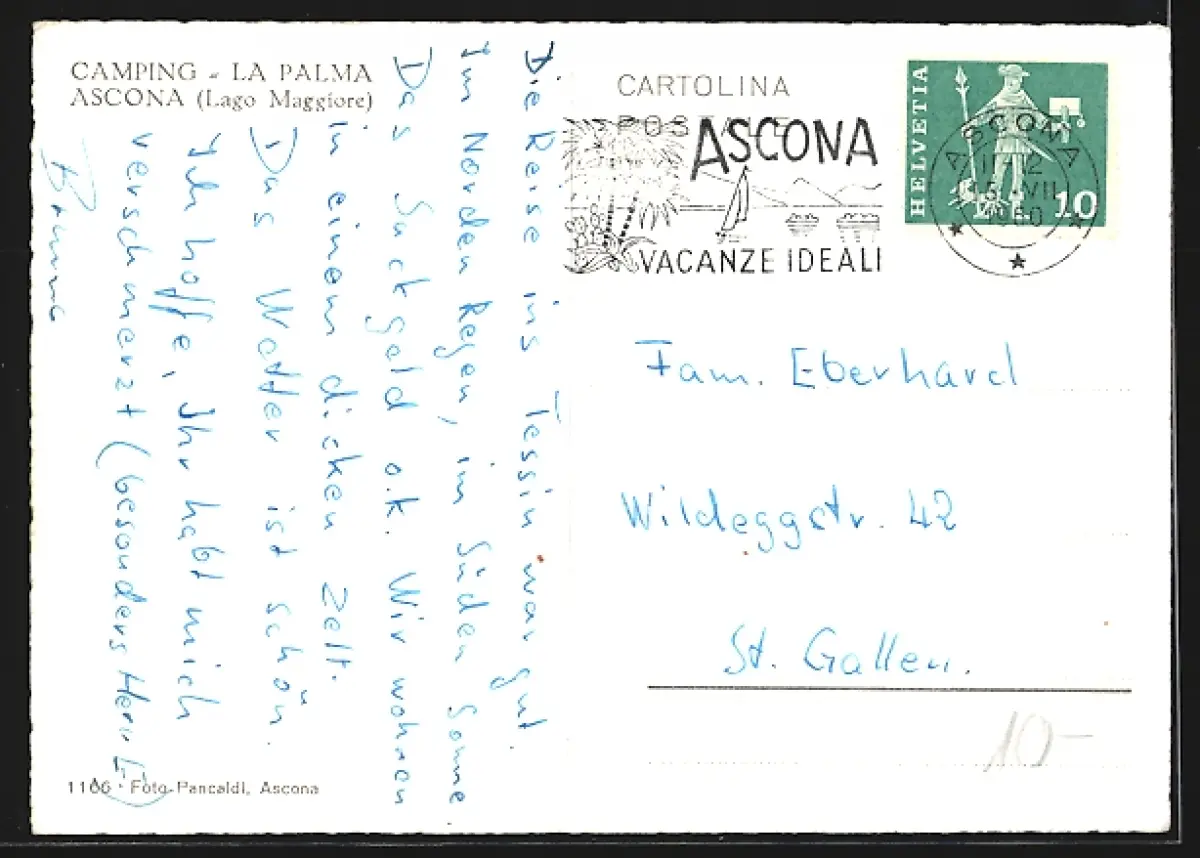 CAMPING - LA PALMA
ASCONA (Lago Maggiore)
Die Reise ins Tessin war gut.
Im Norden Regen, im Süden Sonne
Das Sackgeld o.k. Wir wohnen
in einem dicken Zelt.
Das Wetter ist schön.
Ich hoffe, Ihr habt mich
verschmerzt (besonders Herr E.)
1166 · Foto Pancaldi, Ascona
CARTOLINA
POSTALE
ASCONA
VACANZE IDEALI
HELVETIA
10
ASCONA
1960
Fam. Eberhard
Wildeggstr. 42
St. Gallen.
10-